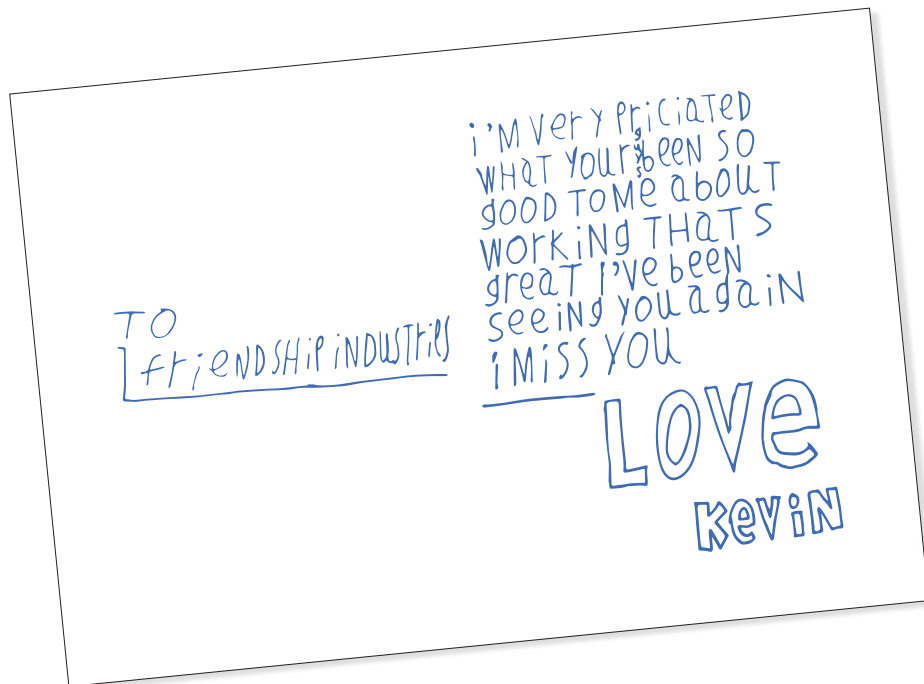 TO
friENDSHiP iNDUSTriES
i'M Very PriCiaTED
WHaT YOUr guys beeN SO
gOOD TO Me abOUT
WOrkiNg THaT S
greaT I've beeN
SeeiNg YOU agaiN
i MiSS YOU
LOVe
KeViN